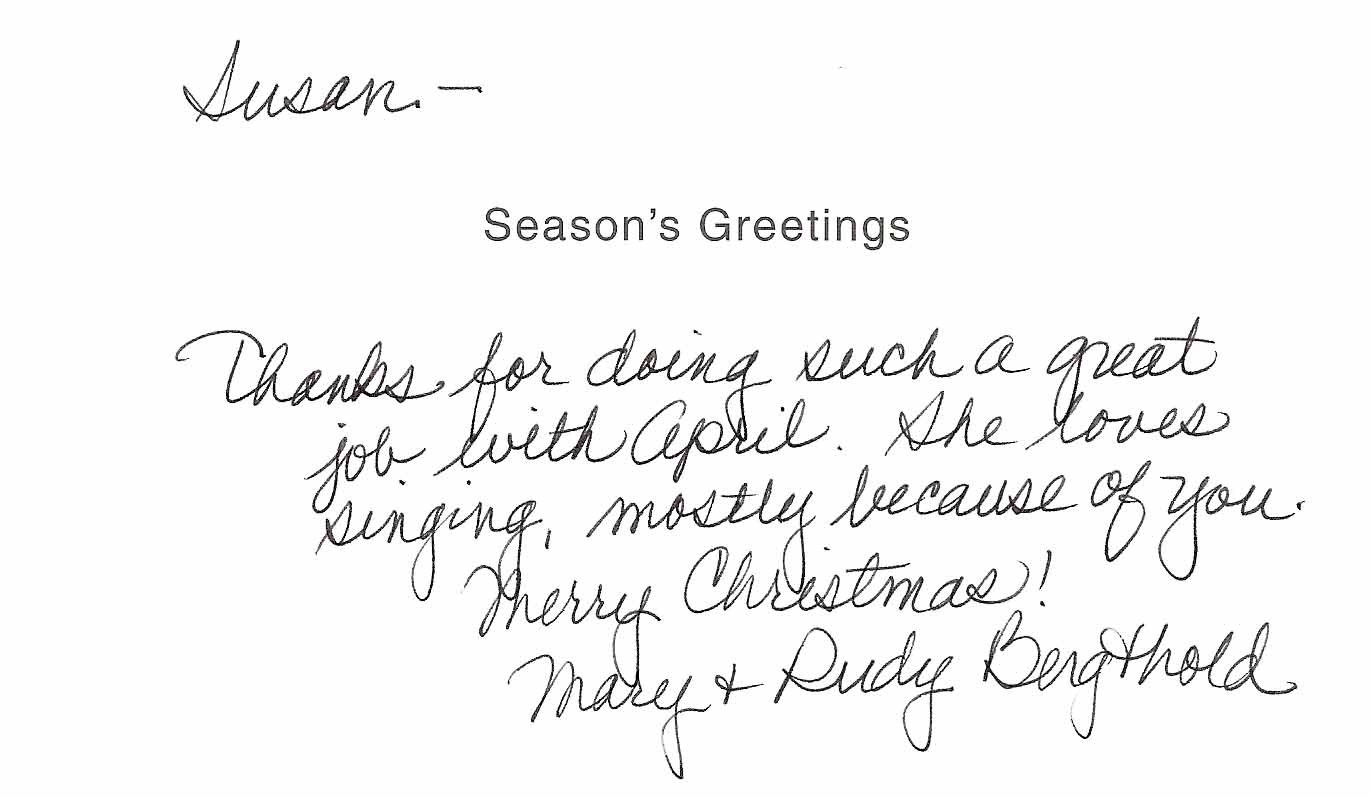 Susan. —
Season's Greetings
Thanks for doing such a great
job with April. She loves
singing, mostly because of you.
Merry Christmas!
Mary + Rudy Bergthold